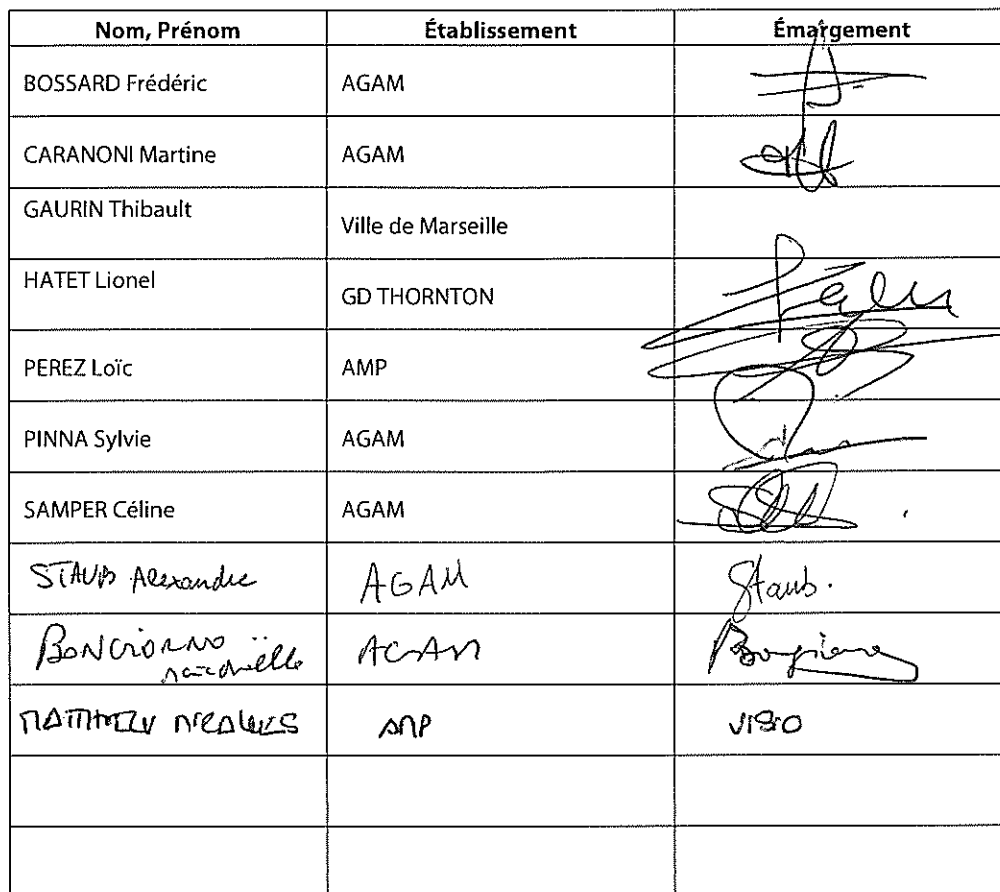 Nom, Prénom Établissement Émargement
BOSSARD Frédéric AGAM
CARANONI Martine AGAM
GAURIN Thibault Ville de Marseille
HATET Lionel GD THORNTON
PEREZ Loïc AMP
PINNA Sylvie AGAM
SAMPER Céline AGAM
STAUB Alexandre AGAM Staub.
BONGIORNO AGAM Bongiorno
AMP VISIO